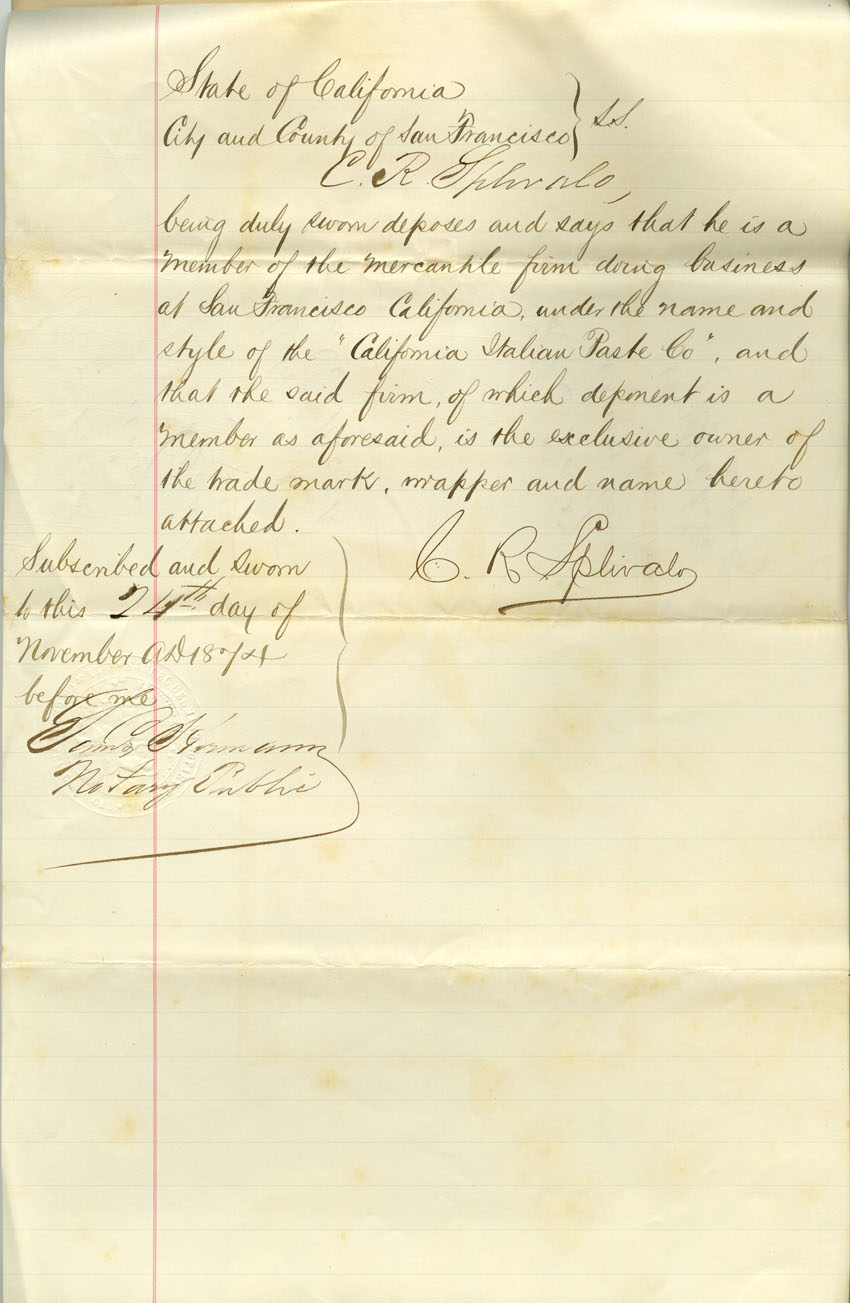 State of California
City and County of San Francisco } S.S.
C. R. Splivalo,
being duly sworn deposes and says that he is a
member of the mercantile firm doing business
at San Francisco California, under the name and
style of the "California Italian Paste Co", and
that the said firm, of which deponent is a
member as aforesaid, is the exclusive owner of
the trade mark, wrapper and name hereto
attached.
C. R. Splivalo
Subscribed and sworn
to this 24th day of
November AD 1874
before me
Hermann
Notary Public